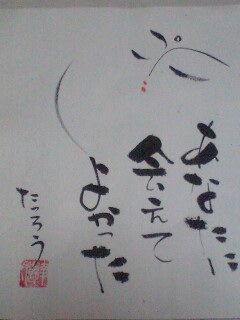 あなたに
会えて
よかった
たつろう